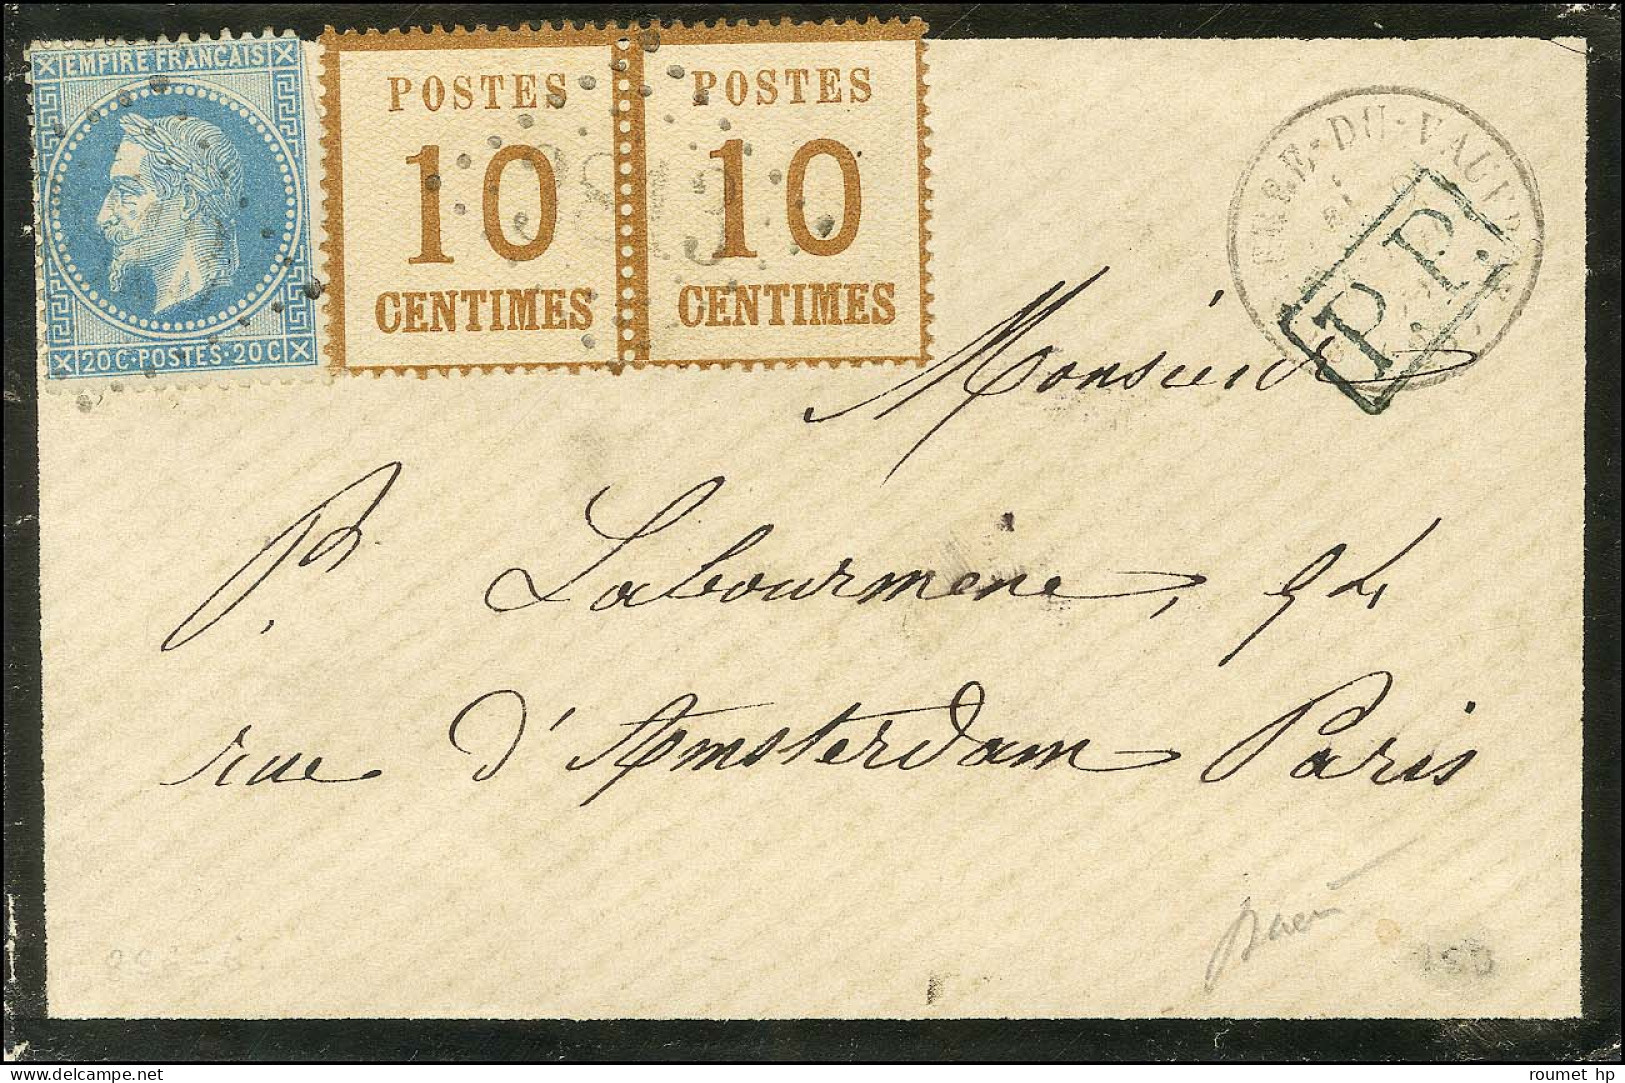 EMPIRE FRANÇAIS
20 C · POSTES · 20 C
POSTES
10
CENTIMES
POSTES
10
CENTIMES
P.P.
Monsieur
Labourmène, 94
rue d'Amsterdam Paris
roumet hp
delcampe.net